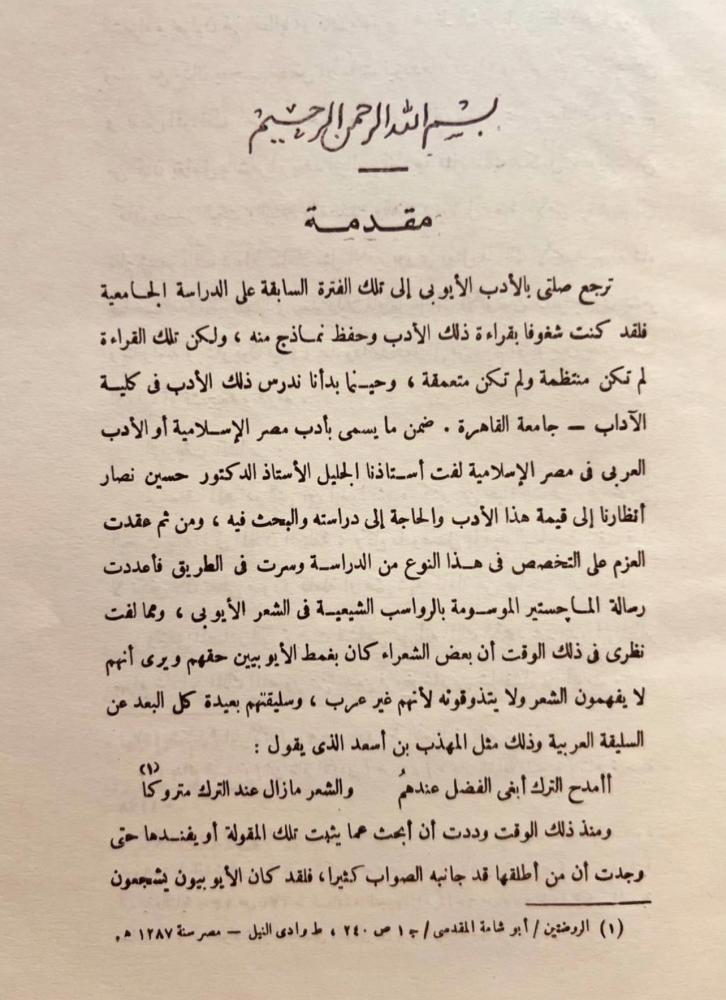 بسم الله الرحمن الرحيم
مقدمة
ترجع صلتى بالأدب الأيوبى إلى تلك الفترة السابقة على الدراسة الجامعية
فلقد كنت شغوفا بقراءة ذلك الأدب وحفظ نماذج منه ، ولكن تلك القراءة
لم تكن منتظمة ولم تكن متعمقة ، وحينما بدأنا ندرس ذلك الأدب فى كلية
الآداب – جامعة القاهرة . ضمن ما يسمى بأدب مصر الإسلامية أو الأدب
العربى فى مصر الإسلامية لفت أستاذنا الجليل الأستاذ الدكتور حسين نصار
أنظارنا إلى قيمة هذا الأدب والحاجة إلى دراسته والبحث فيه ، ومن ثم عقدت
العزم على التخصص فى هذا النوع من الدراسة وسرت فى الطريق فأعددت
رسالة الماچستير الموسومة بالرواسب الشيعية فى الشعر الأيوبى ، ومما لفت
نظرى فى ذلك الوقت أن بعض الشعراء كان يغمط الأيوبيين حقهم ويرى أنهم
لا يفهمون الشعر ولا يتذوقونه لأنهم غير عرب ، وسليقتهم بعيدة كل البعد عن
السليقة العربية وذلك مثل المهذب بن أسعد الذى يقول :
أأمدح الترك أبغى الفضل عندهمُ والشعر مازال عند الترك متروكا (١)
ومنذ ذلك الوقت وددت أن أبحث عما يثبت تلك المقولة أو يفندها حتى
وجدت أن من أطلقها قد جانبه الصواب كثيرا، فلقد كان الأيوبيون يشجعون
(١) الروضتين / أبو شامة المقدسى / ج ١ ص ٢٤٠ ، ط وادى النيل – مصر سنة ١٢٨٧ هـ.